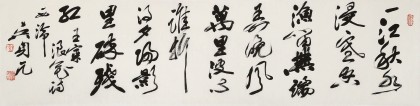 一江秋水
浸寒空
漁笛無端
弄晚風
萬里波心
誰折
得夕陽影
里碎殘
紅 王寀浪花詩